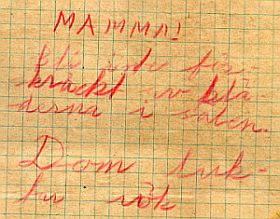 MAMMA!
bli inte för-
kräckt av klä-
derna i salen.
Dom luk-
tar rök